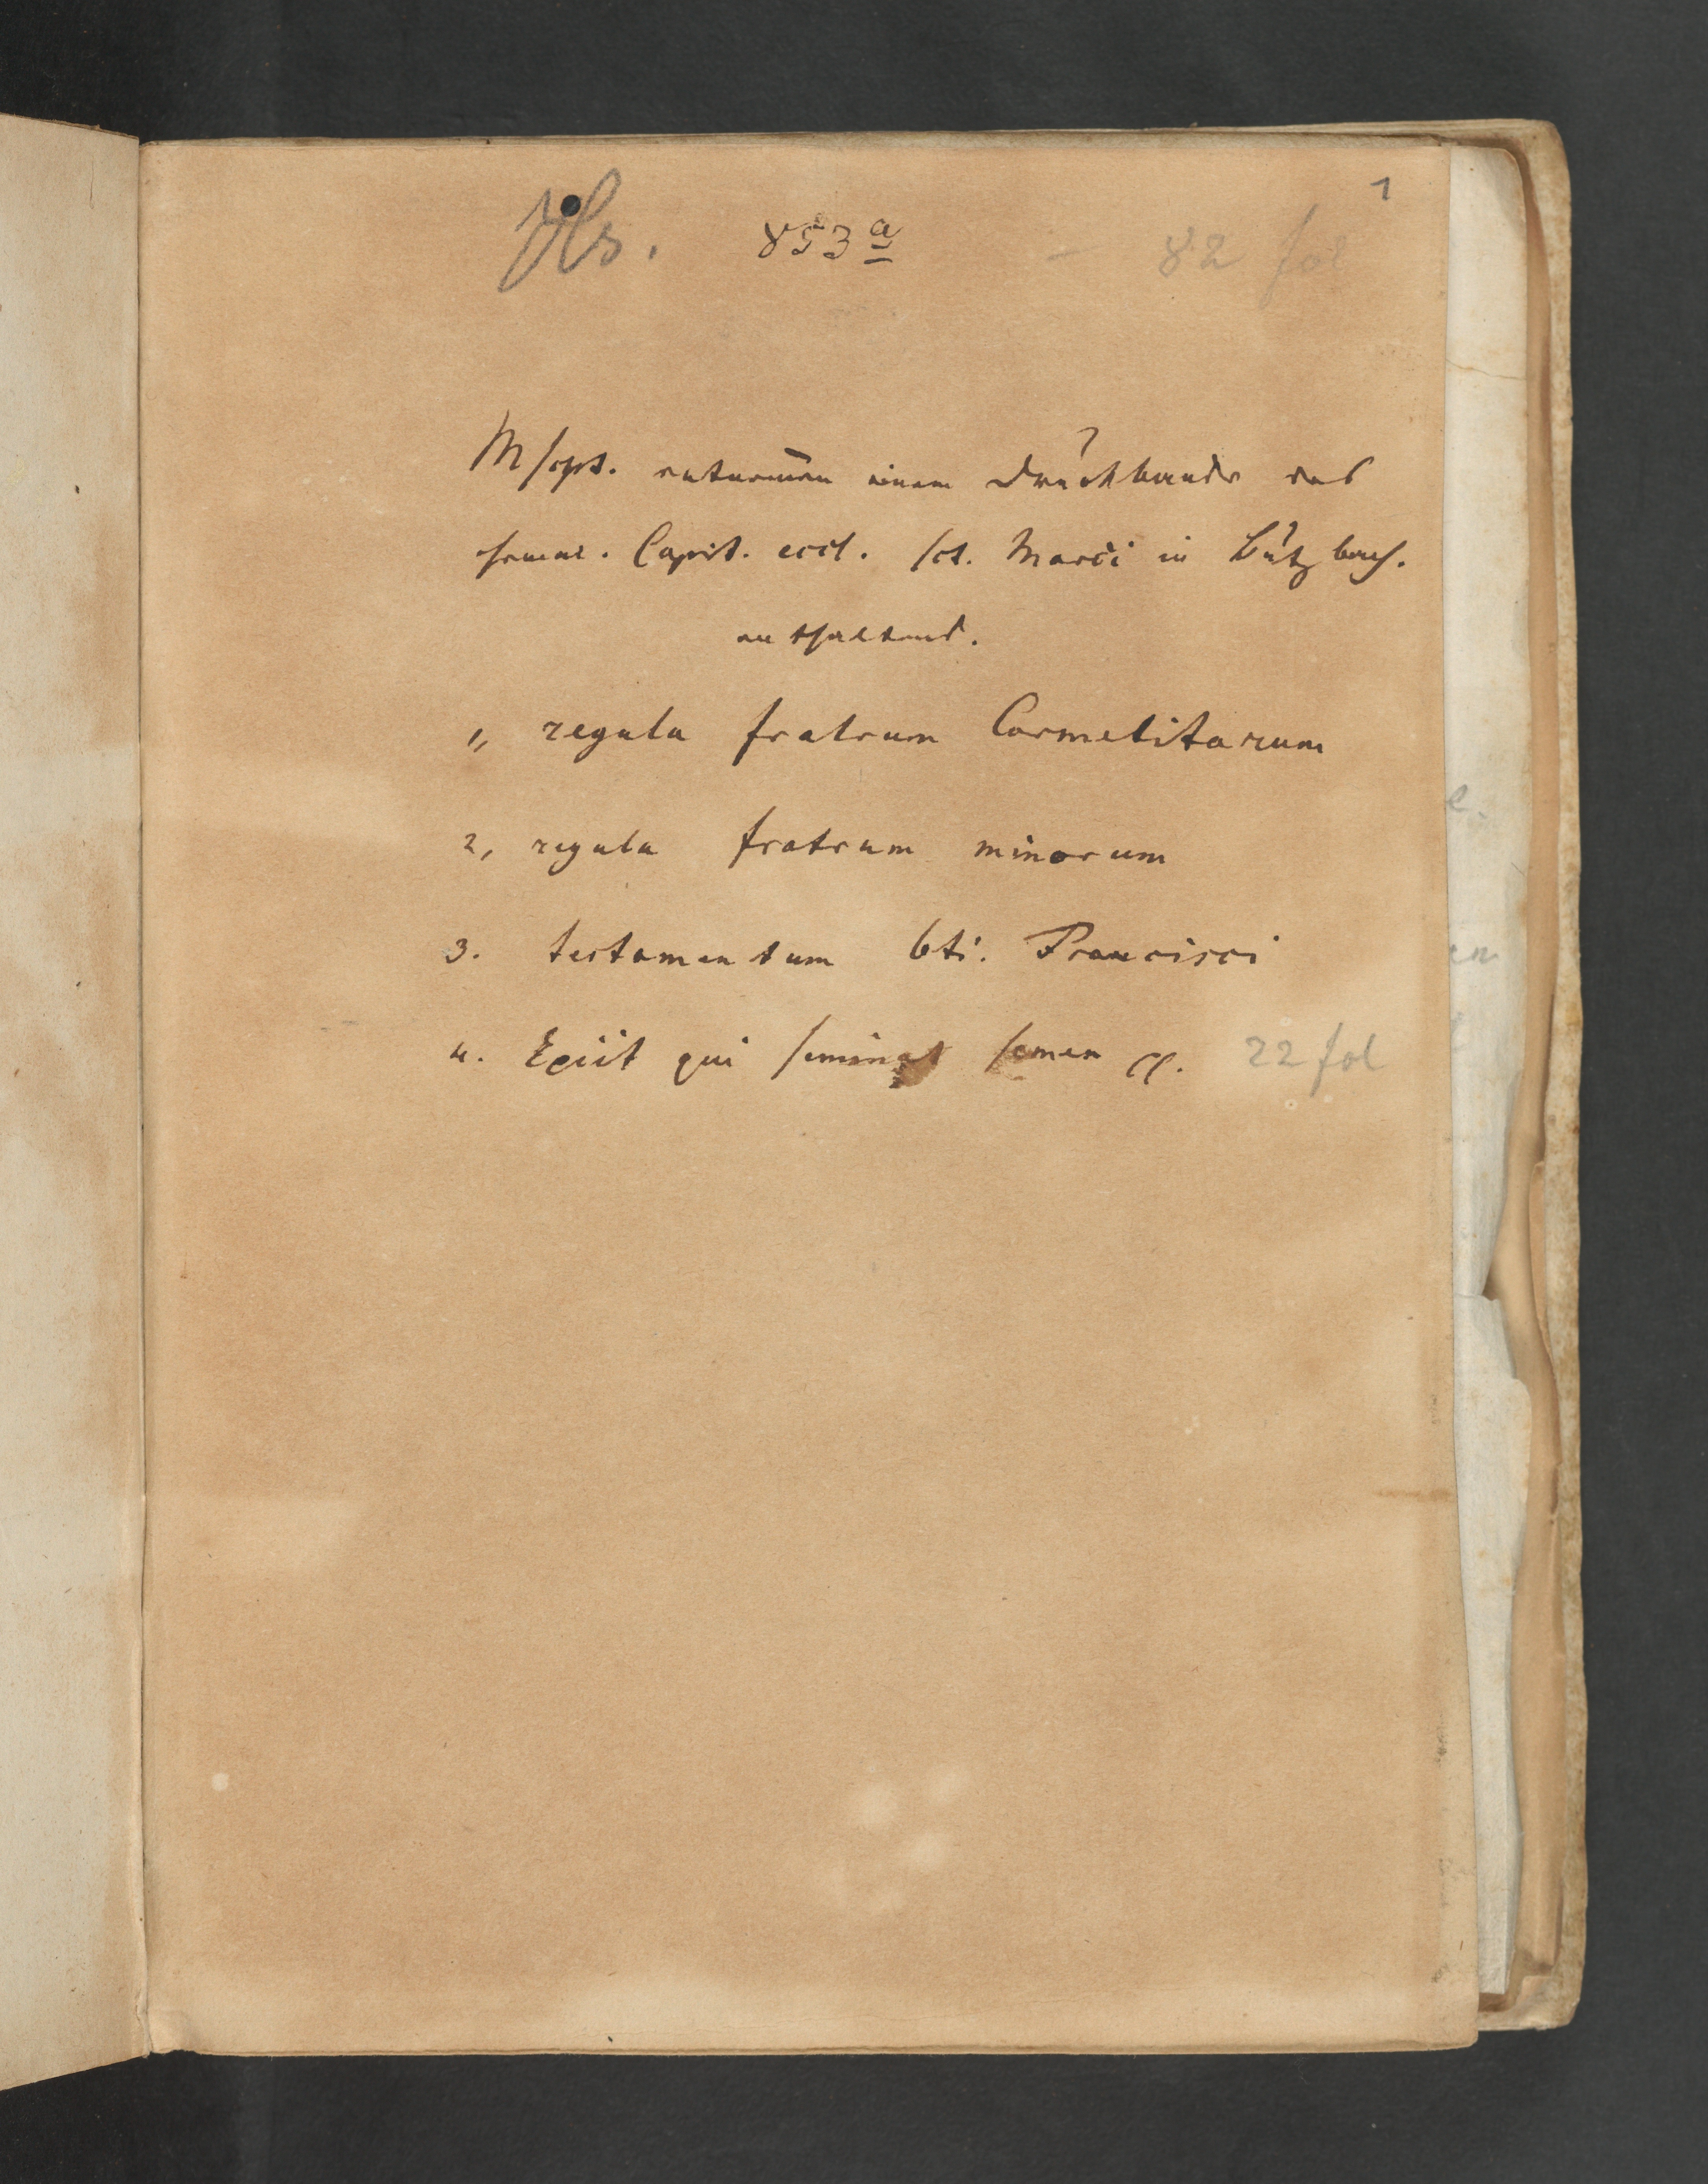 1
Hs. 853a - 82 fol
Mscpt. entnom̄en einem Druckbande des
ehemal. Capit. eccl. sct. Marci in Butzbach.
enthaltend.
1, regula fratrum Carmelitarum
2, regula fratrum minorum
3. testamentum bti. Francisci
4. Exiit qui seminat semen 22 fol